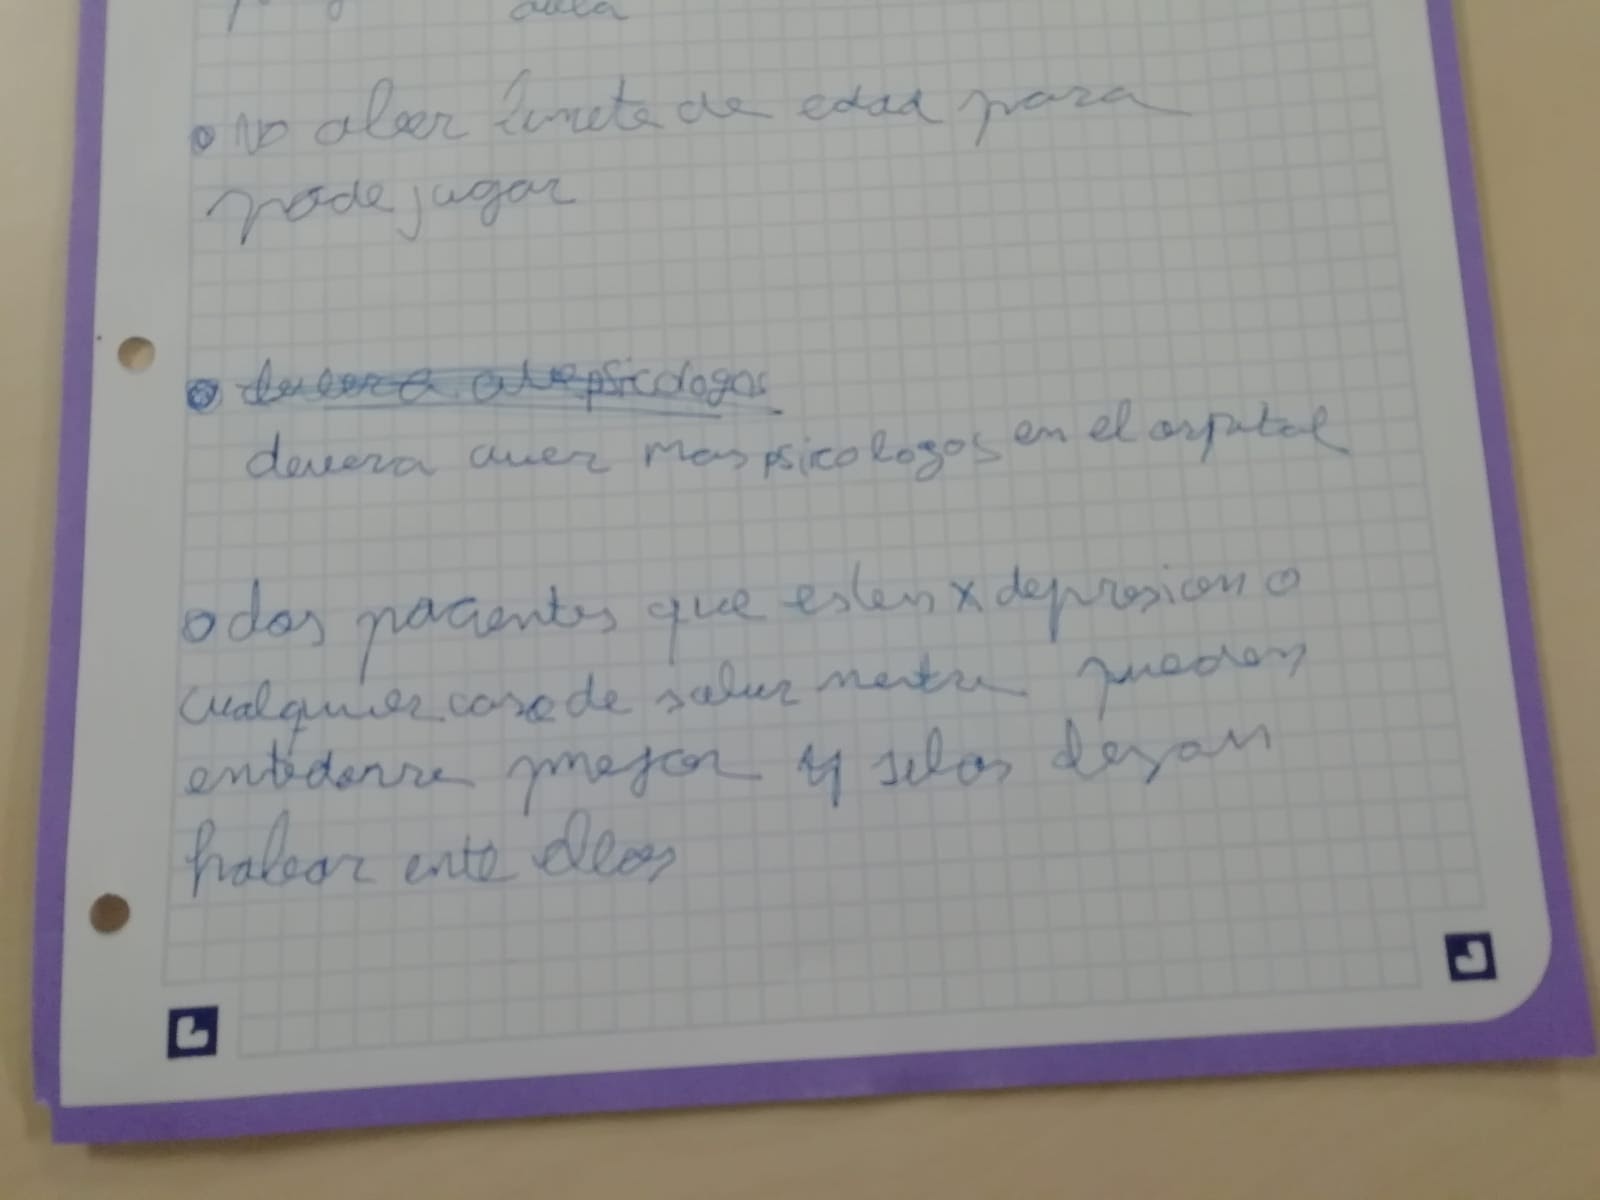 aula
No aber limete de edad para
pode jugar
psicologos
devera aver mas psicologos en el ospital
dos pacientes que esten x depresion o
cualquier caso de salur mentre pueden
entederre mejor y selos dejan
halear ente elos